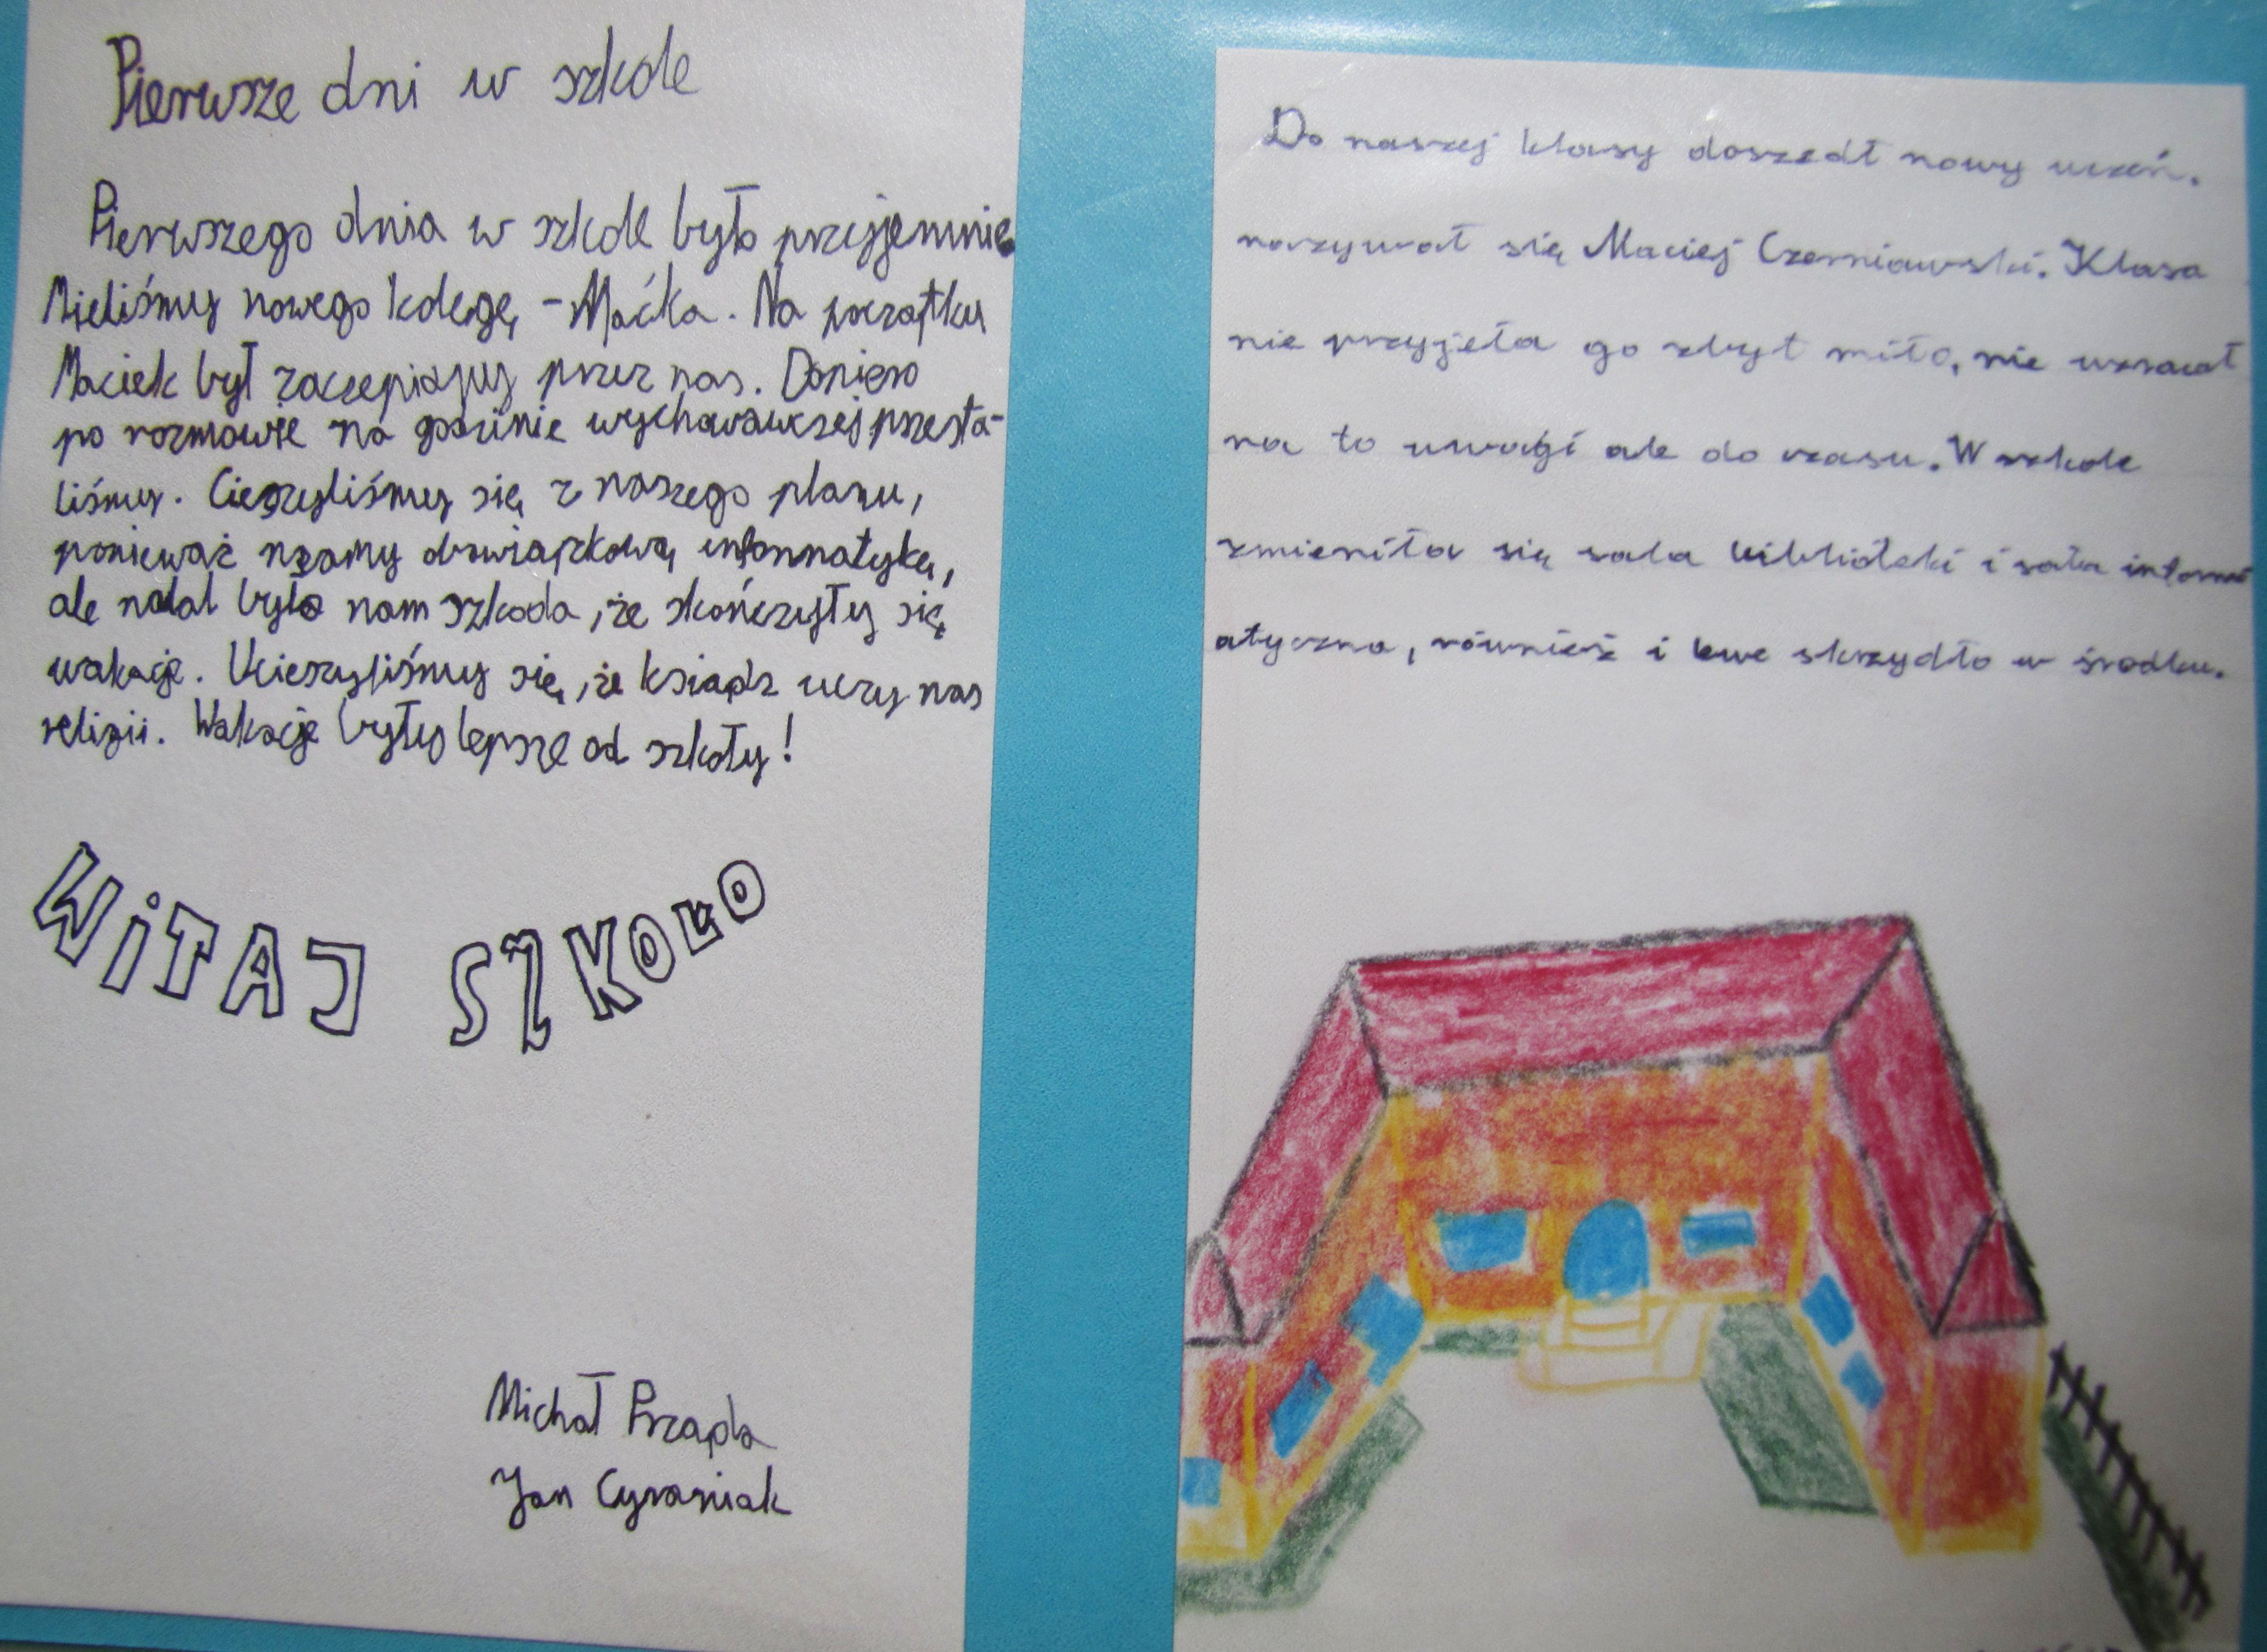 Pierwsze dni w szkole
Pierwszego dnia w szkole było przyjemnie.
Mieliśmy nowego kolegę, - Maćka. Na początku
Maciek był zaczepiajny przez nas. Dopiero
po rozmowie na godzinie wychowawczej przesta-
liśmy. Cieszyliśmy się z naszego planu,
ponieważ mamy obowiązkową informatykę,
ale nadal było nam szkoda, że skończyły się
wakacje. Ucieszyliśmy się, że ksiądz uczy nas
religii. Wakacje były lepsze od szkoły!
WiTAJ SZKOŁO
Michał
Jan Cyraniak
Do naszej klasy doszedł nowy uczeń.
nazywał się Maciej Czerniawski. Klasa
nie przyjeła go zbyt miło, nie wzracał
na to uwagi ale do czasu. W szkole
zmieniła się sala biblioteki i sala inform
atyczna, również i lewe skrzydło w środku.